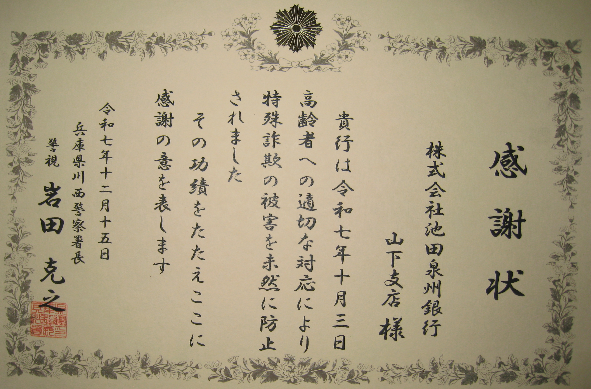 感謝状
株式会社池田泉州銀行
山下支店 様
貴行は令和七年十月三日
高齢者への適切な対応により
特殊詐欺の被害を未然に防止
されました
その功績をたたえここに
感謝の意を表します
令和七年十二月十五日
兵庫県川西警察署長
警視 岩田克之